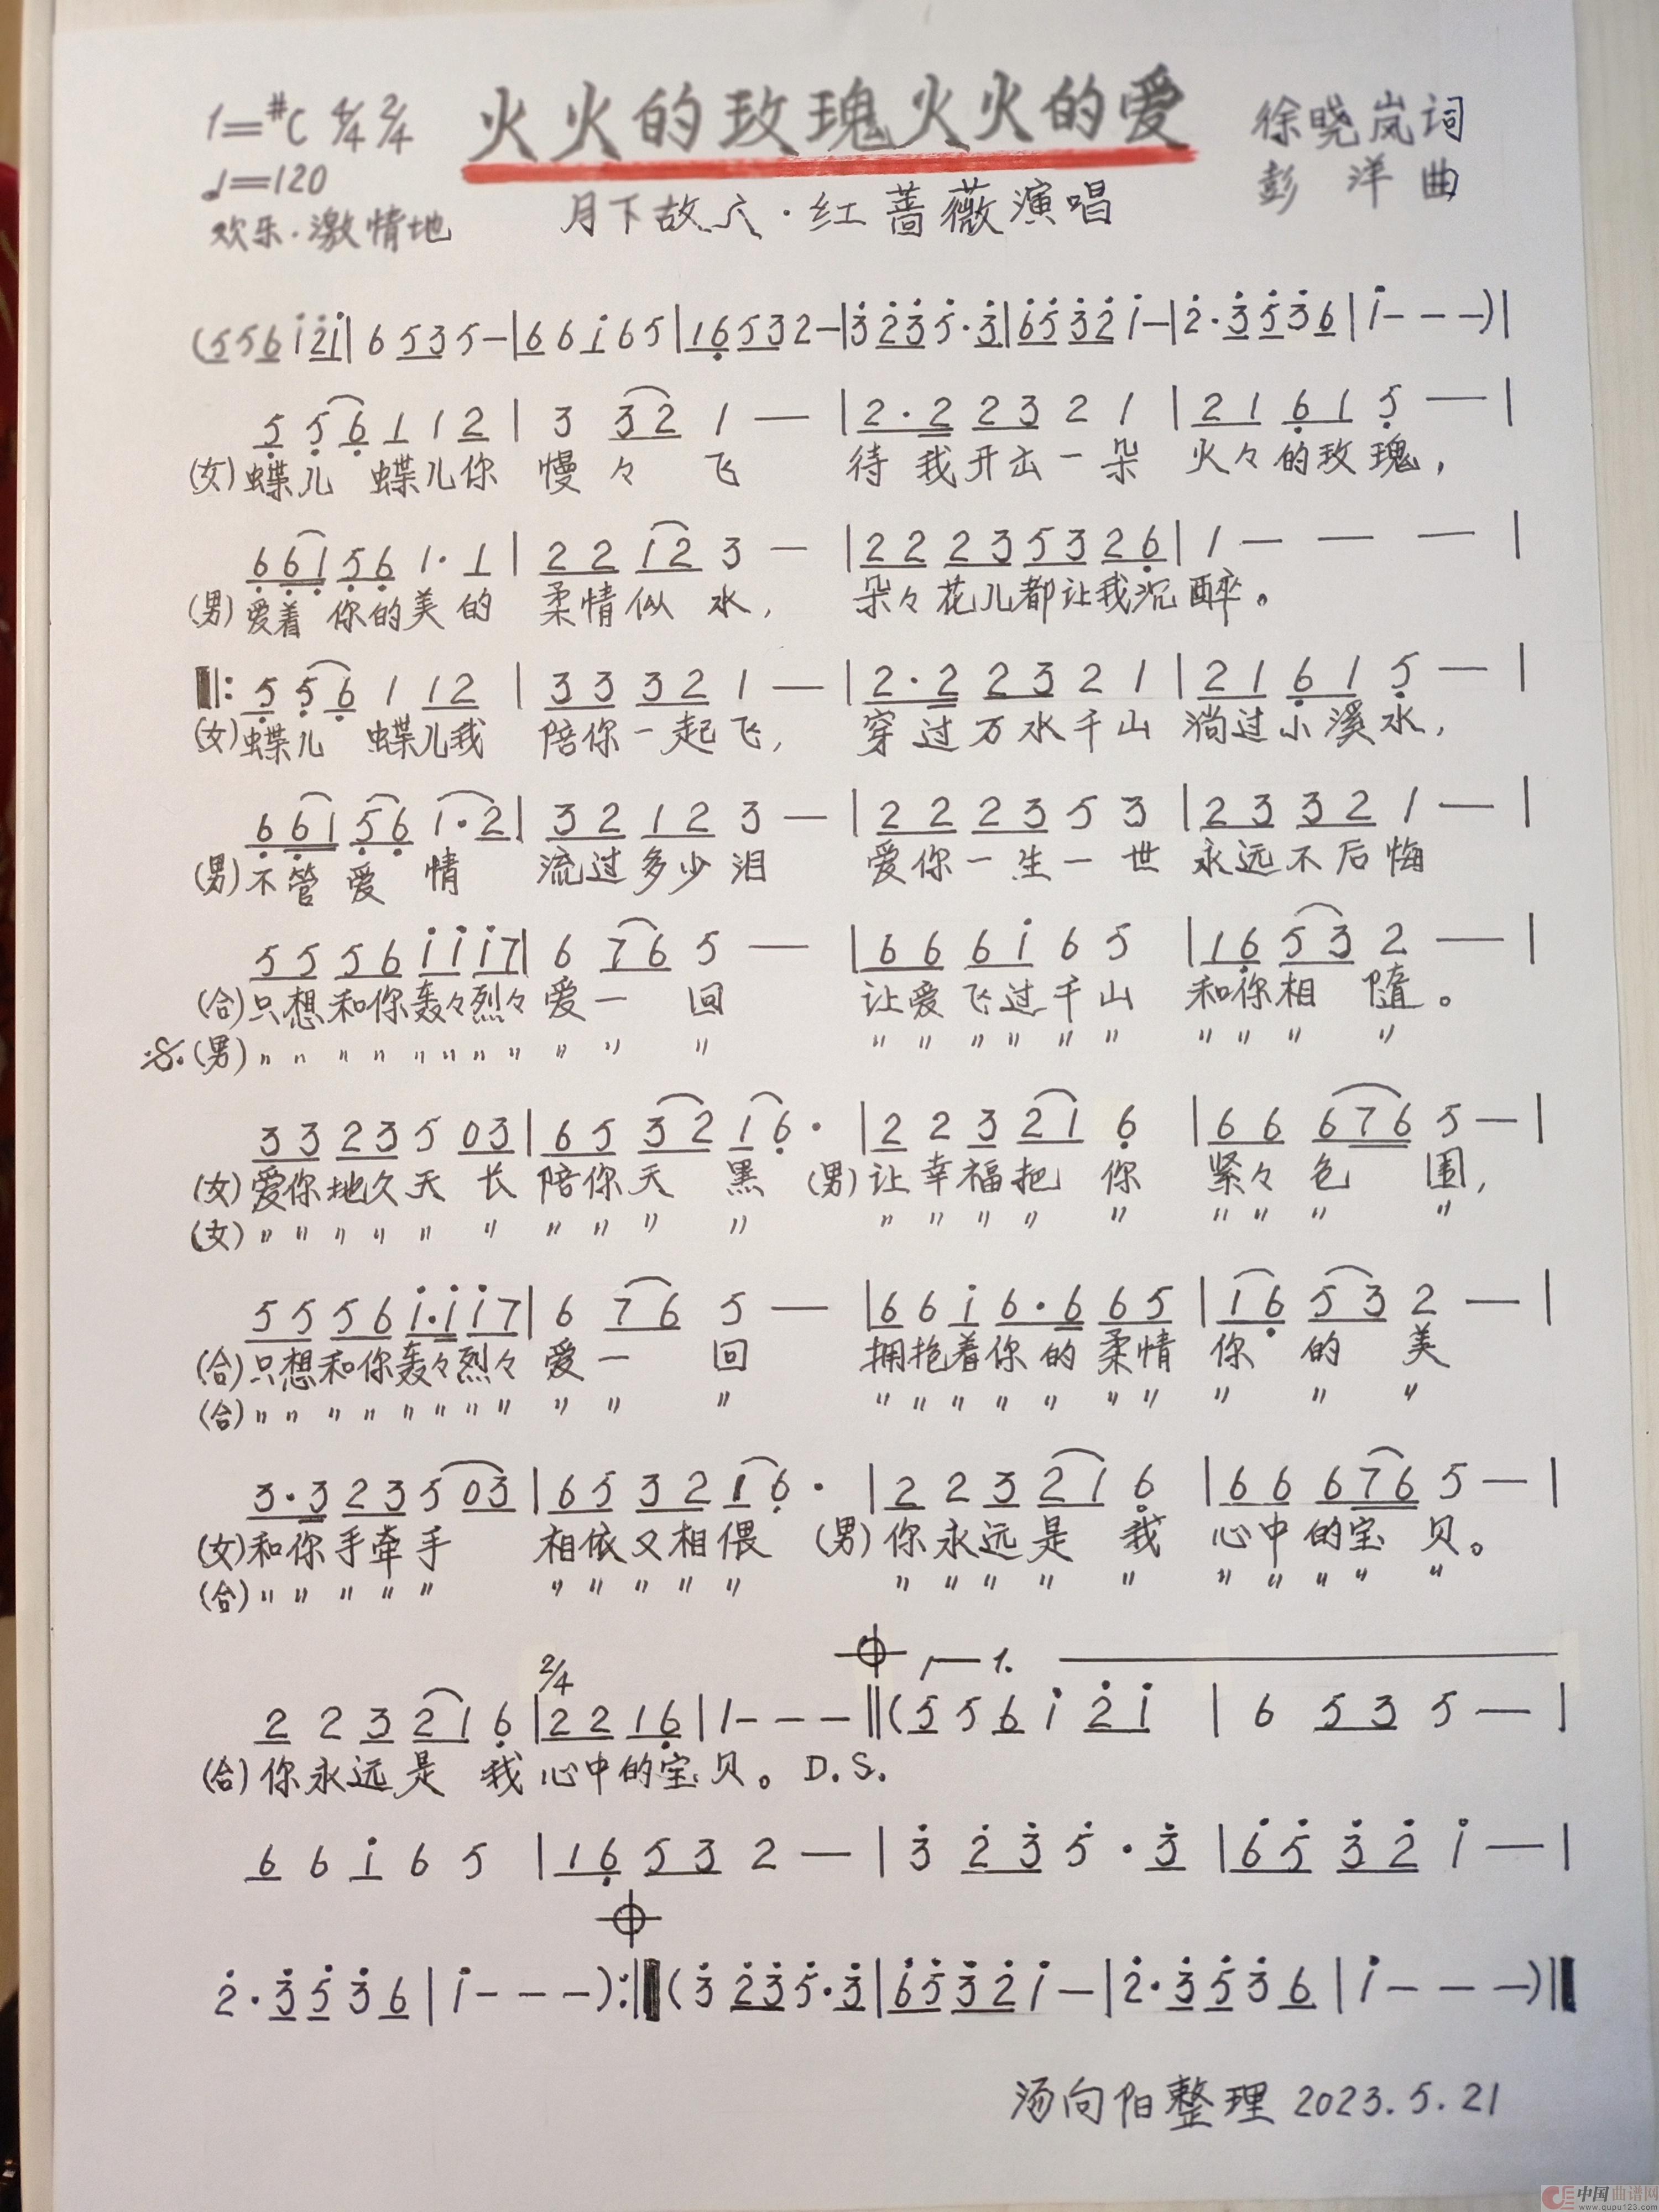 1=#C 4/4 2/4 火火的玫瑰火火的爱 徐晓岚词
♩=120 彭 洋 曲
欢乐·激情地 月下故人·红蔷薇演唱
(5 5 6 i 2 i | 6 5 3 5 — | 6 6 i 6 5 | 1 6 5 3 2 — | 3 2 3 5 · 3 | 6 5 3 2 i — | 2 · 3 5 3 6 | i - - - ) |
5 5 6 1 1 2 | 3 3 2 1 — | 2 · 2 2 3 2 1 | 2 1 6 1 5 — |
(女) 蝶儿 蝶儿你 慢々 飞 待我开出一朵 火々的玫瑰，
6 6 1 5 6 1 · 1 | 2 2 1 2 3 — | 2 2 2 3 5 3 2 6 | 1 — — — |
(男) 爱着 你的美的 柔情似水， 朵々花儿都让我沉醉。
‖: 5 5 6 1 1 2 | 3 3 3 2 1 — | 2 · 2 2 3 2 1 | 2 1 6 1 5 — |
(女) 蝶儿 蝶儿我 陪你一起飞， 穿过万水千山 淌过小溪水，
6 6 1 5 6 1 · 2 | 3 2 1 2 3 — | 2 2 2 3 5 3 | 2 3 3 2 1 — |
(男) 不管爱情 流过多少泪 爱你一生一世 永远不后悔
5 5 5 6 i i i 7 | 6 7 6 5 — | 6 6 6 i 6 5 | 1 6 5 3 2 — |
(合) 只想和你轰々烈々 爱一回 让爱飞过千山 和你相随。
𝄋 (男) 〃 〃 〃 〃 〃 〃 〃 〃 〃 〃 〃 〃 〃 〃 〃 〃 〃 〃 〃 〃 〃
3 3 2 3 5 0 3 | 6 5 3 2 1 6 · | 2 2 3 2 1 6 | 6 6 6 7 6 5 — |
(女) 爱你地久天 长 陪你天 黑 (男) 让幸福把 你 紧々包 围，
(女) 〃 〃 〃 〃 〃 〃 〃 〃 〃 〃 〃 〃 〃 〃 〃 〃 〃 〃 〃
5 5 5 6 i · i i 7 | 6 7 6 5 — | 6 6 i 6 · 6 6 5 | 1 6 5 3 2 — |
(合) 只想和你轰々烈々 爱一回 拥抱着你的柔情 你的美
(合) 〃 〃 〃 〃 〃 〃 〃 〃 〃 〃 〃 〃 〃 〃 〃 〃 〃 〃 〃 〃 〃
3 · 3 2 3 5 0 3 | 6 5 3 2 1 6 · | 2 2 3 2 1 6 | 6 6 6 7 6 5 — |
(女) 和你手牵手 相依又相偎 (男) 你永远是 我 心中的宝贝。
(合) 〃 〃 〃 〃 〃 〃 〃 〃 〃 〃 〃 〃 〃 〃 〃 〃 〃 〃 〃 〃
2/4 1.
2 2 3 2 1 6 | 2 2 1 6 | 1 - - - ‖ (5 5 6 i 2 i | 6 5 3 5 — |
(合) 你永远是 我 心中的宝贝。 D.S.
6 6 i 6 5 | 1 6 5 3 2 — | 3 2 3 5 · 3 | 6 5 3 2 i — |
2 · 3 5 3 6 | i - - - ) :‖ (3 2 3 5 · 3 | 6 5 3 2 i — | 2 · 3 5 3 6 | i - - - ) ‖
汤向阳整理 2023.5.21
中国曲谱网
www.qupu123.com